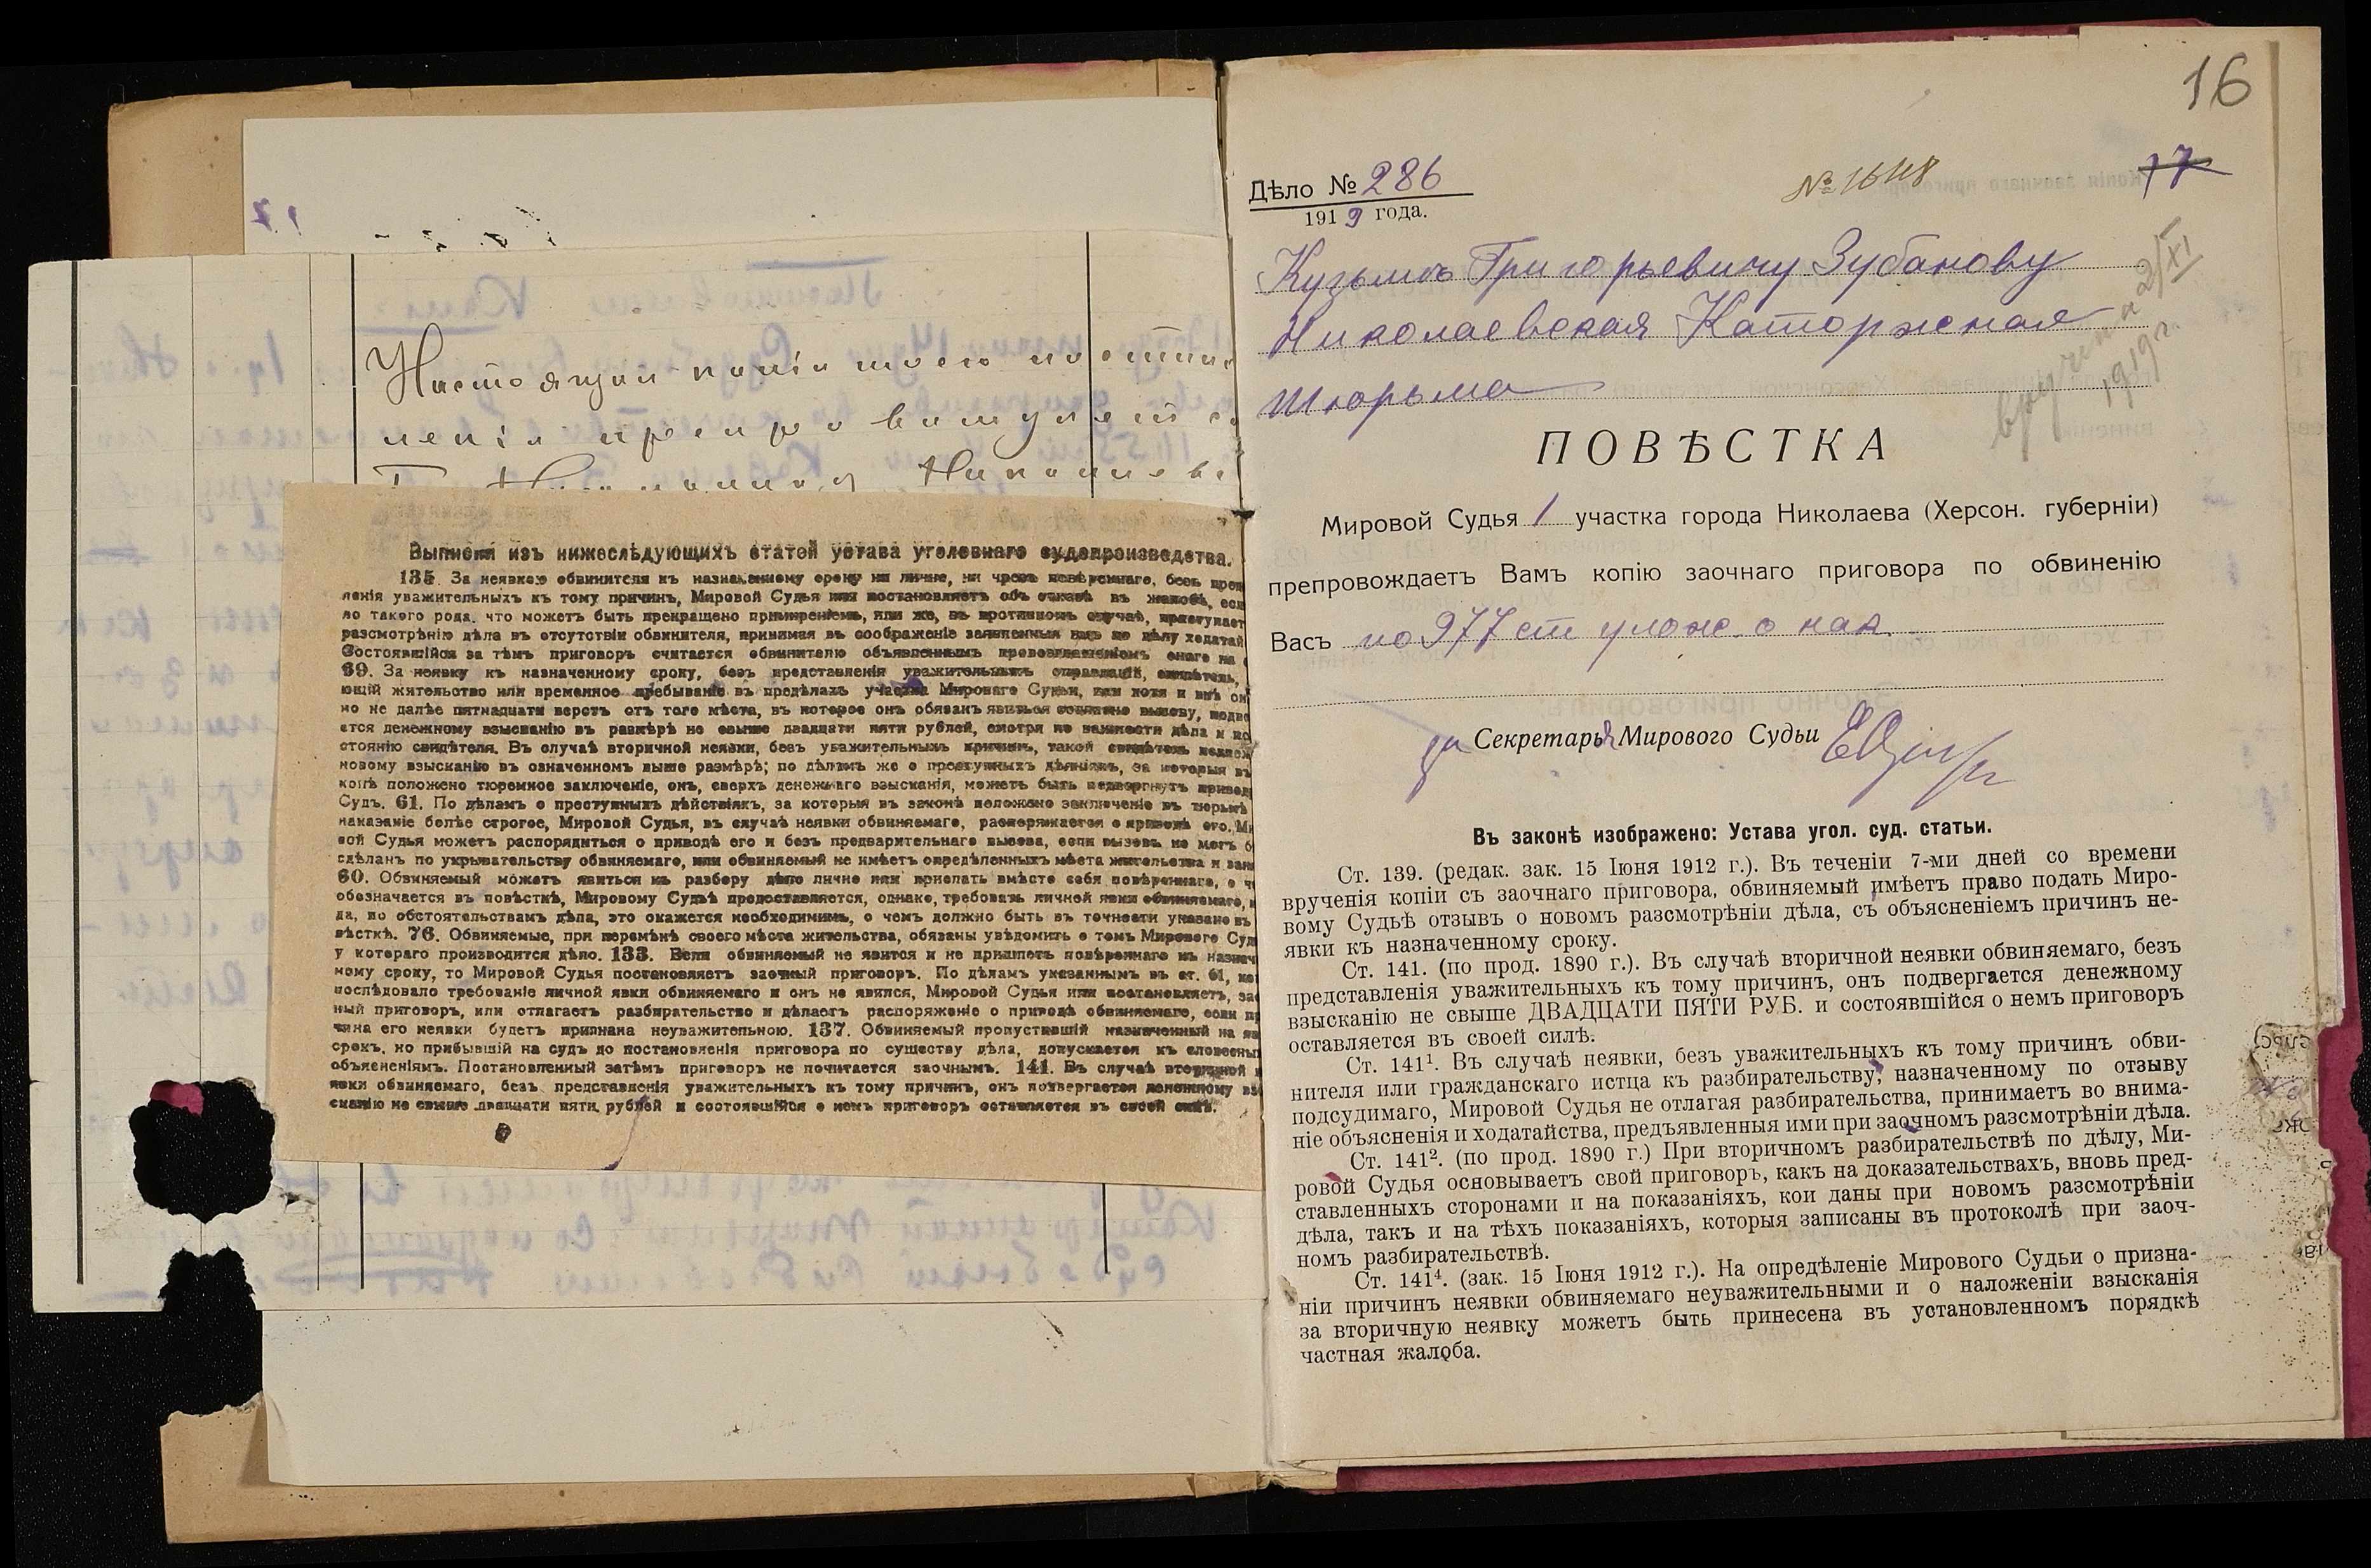 Настоящая копія моего постанов
ленія препровождается
Выписки изъ нижеслѣдующихъ статей устава уголовнаго судопроизводства.
135. За неявкою обвинителя къ назначенному сроку ни лично, ни чрезъ повѣреннаго, безъ
ленія уважительныхъ къ тому причинъ, Мировой Судья или постановляетъ объ отказѣ въ жалобѣ, если
ло такого рода, что можетъ быть прекращено примиреніемъ, или же, въ противномъ случаѣ, приступаетъ
разсмотрѣнію дѣла въ отсутствіи обвинителя, принимая въ соображеніе заявленныя имъ по дѣлу ходатай
Состоявшійся за тѣмъ приговоръ считается обвинителю объявленнымъ провозглашеніемъ онаго на
69. За неявку къ назначенному сроку, безъ представленія уважительныхъ оправданій, свидѣтель,
ющій жительство или временное пребываніе въ предѣлахъ участка Мироваго Судьи, или хотя и внѣ он
но не далѣе пятнадцати верстъ отъ того мѣста, въ которое онъ обязанъ явиться согласно вызову, подве
ется денежному взысканію въ размѣрѣ не свыше двадцати пяти рублей, смотря по важности дѣла и по
стоянію свидѣтеля. Въ случаѣ вторичной неявки, безъ уважительныхъ причинъ, такой свидѣтель подлеж
новому взысканію въ означенномъ выше размѣрѣ; по дѣламъ же о преступныхъ дѣяніяхъ, за которыя въ
конѣ положено тюремное заключеніе, онъ, сверхъ денежнаго взысканія, можетъ быть подвергнутъ приводу
Судъ. 61. По дѣламъ о преступныхъ дѣйствіяхъ, за которыя въ законѣ положено заключеніе въ тюрьмѣ
наказаніе болѣе строгое, Мировой Судья, въ случаѣ неявки обвиняемаго, распоряжается о приводѣ его. Ми
вой Судья можетъ распорядиться о приводѣ его и безъ предварительнаго вызова, если вызовъ не могъ б
сдѣланъ по укрывательству обвиняемаго, или обвиняемый не имѣетъ опредѣленныхъ мѣста жительства и зан
60. Обвиняемый можетъ явиться къ разбору дѣла лично или прислать вмѣсто себя повѣреннаго, о ч
обозначается въ повѣсткѣ, Мировому Судьѣ предоставляется, однако, требовать личной явки обвиняемаго, к
да, по обстоятельствамъ дѣла, это окажется необходимымъ, о чемъ должно быть въ точности указано въ
вѣсткѣ. 76. Обвиняемые, при перемѣнѣ своего мѣста жительства, обязаны увѣдомить о томъ Мироваго Суд
у котораго производится дѣло. 133. Если обвиняемый не явится и не пришлетъ повѣреннаго къ назнач
ному сроку, то Мировой Судья постановляетъ заочный приговоръ. По дѣламъ указаннымъ въ ст. 61, ко
послѣдовало требованіе личной явки обвиняемаго и онъ не явился, Мировой Судья или постановляетъ, зао
ный приговоръ, или отлагаетъ разбирательство и дѣлаетъ распоряженіе о приводѣ обвиняемаго, если пр
чина его неявки будетъ признана неуважительною. 137. Обвиняемый пропустившій назначенный на яв
срокъ, но прибывшій на судъ до постановленія приговора по существу дѣла, допускается къ словесны
объясненіямъ. Постановленный затѣмъ приговоръ не почитается заочнымъ. 141. Въ случаѣ вторичной н
явки обвиняемаго, безъ представленія уважительныхъ къ тому причинъ, онъ подвергается денежному вз
сканію не свыше двадцати пяти рублей и состоявшійся о немъ приговоръ оставляется въ своей силѣ.
16
17
№ 1648
Дѣло № 286
1919 года.
Кузьмѣ Григорьевичу Зубанову
Николаевская Каторжная
тюрьма
вручена 2/XI
1919 г.
ПОВѢСТКА
Мировой Судья 1 участка города Николаева (Херсон. губерніи)
препровождаетъ Вамъ копію заочнаго приговора по обвиненію
Васъ по 977 ст улож. о нак.
за Секретаря Мирового Судьи
Въ законѣ изображено: Устава угол. суд. статьи.
Ст. 139. (редак. зак. 15 Іюня 1912 г.). Въ теченіи 7-ми дней со времени
врученія копіи съ заочнаго приговора, обвиняемый имѣетъ право подать Миро-
вому Судьѣ отзывъ о новомъ разсмотрѣніи дѣла, съ объясненіемъ причинъ не-
явки къ назначенному сроку.
Ст. 141. (по прод. 1890 г.). Въ случаѣ вторичной неявки обвиняемаго, безъ
представленія уважительныхъ къ тому причинъ, онъ подвергается денежному
взысканію не свыше ДВАДЦАТИ ПЯТИ РУБ. и состоявшійся о немъ приговоръ
оставляется въ своей силѣ.
Ст. 141¹. Въ случаѣ неявки, безъ уважительныхъ къ тому причинъ обви-
нителя или гражданскаго истца къ разбирательству, назначенному по отзыву
подсудимаго, Мировой Судья не отлагая разбирательства, принимаетъ во внима-
ніе объясненія и ходатайства, предъявленныя ими при заочномъ разсмотрѣніи дѣла.
Ст. 141². (по прод. 1890 г.) При вторичномъ разбирательствѣ по дѣлу, Ми-
ровой Судья основываетъ свой приговоръ, какъ на доказательствахъ, вновь пред-
ставленныхъ сторонами и на показаніяхъ, кои даны при новомъ разсмотрѣніи
дѣла, такъ и на тѣхъ показаніяхъ, которыя записаны въ протоколѣ при заоч-
номъ разбирательствѣ.
Ст. 141⁴. (зак. 15 Іюня 1912 г.). На опредѣленіе Мирового Судьи о призна-
ніи причинъ неявки обвиняемаго неуважительными и о наложеніи взысканія
за вторичную неявку можетъ быть принесена въ установленномъ порядкѣ
частная жалоба.